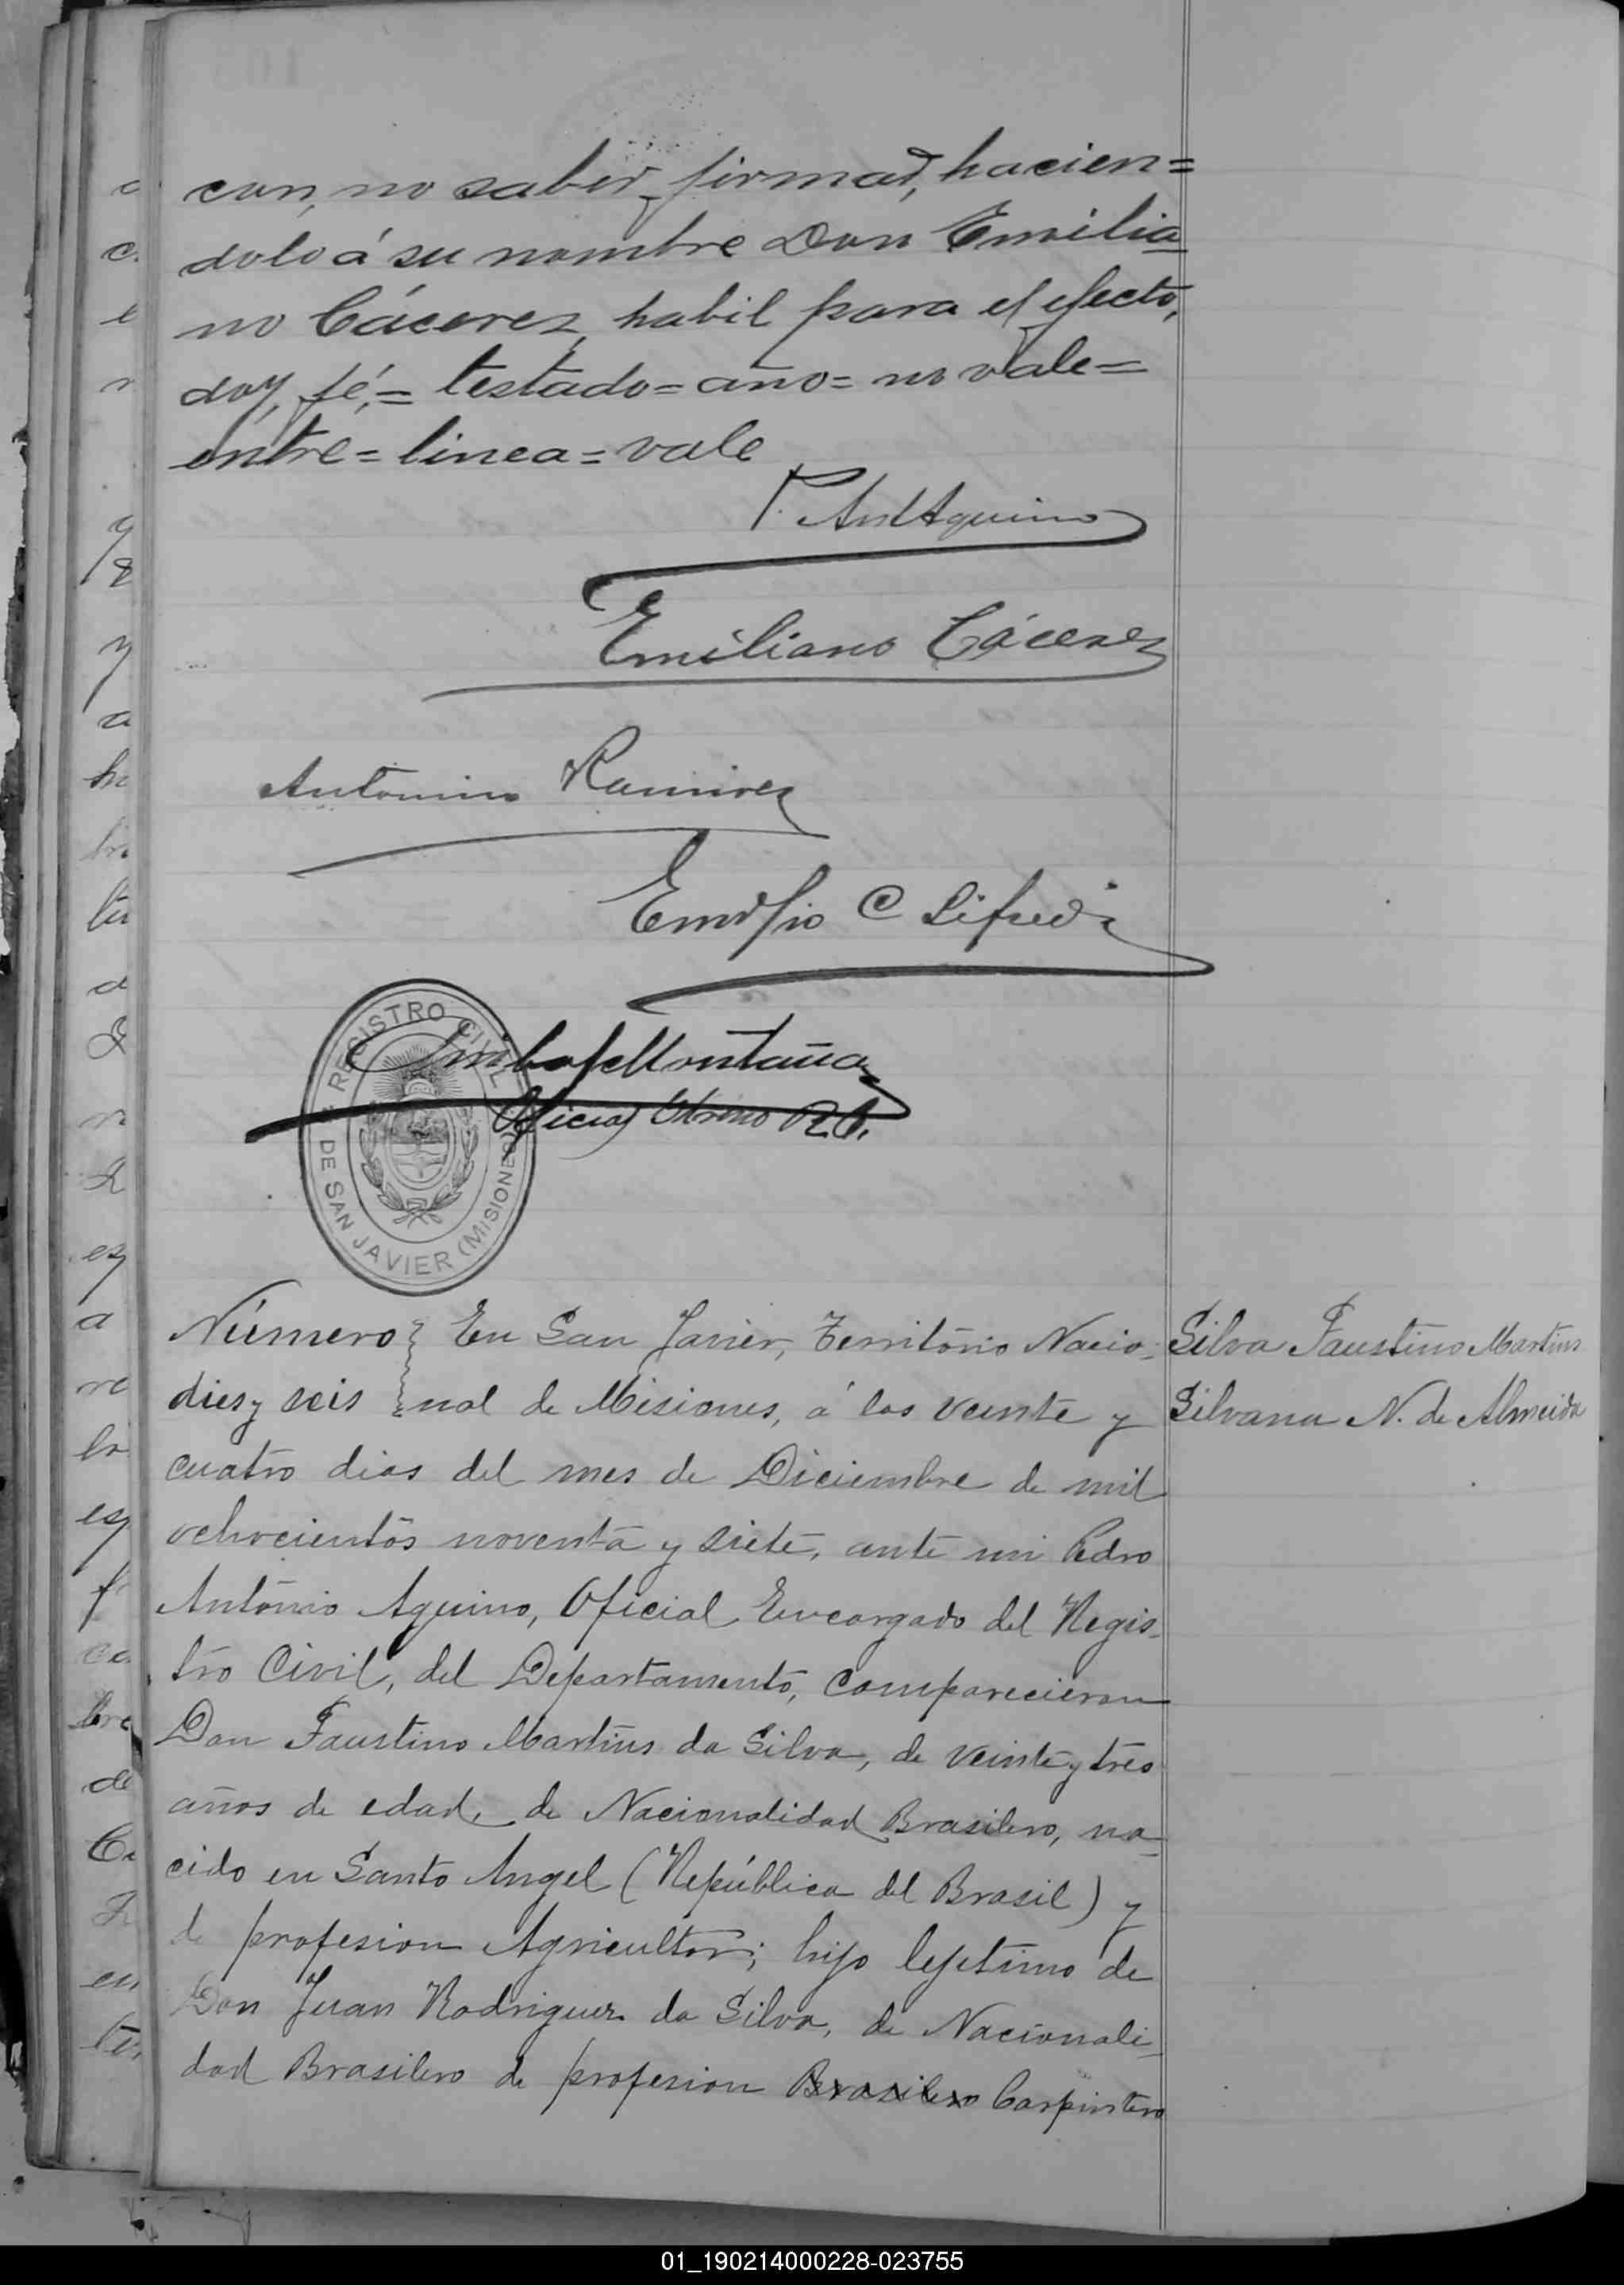 can, no saber firmar, hacien=
dolo á su nombre Don Emilia=
no Cácerez, habil para el efecto,
doy, fé,= testado= año= no vale=
entre= linea= vale
P. Ant Aquino
Emiliano Cácerez
Antonino Ramirez
Emilio C
Montaña
Oficial R.C.
REGISTRO CIVIL
DE SAN JAVIER (MISIONES)
Número En San Javier, Territorio Nacio-
dies y seis nal de Misiones, á los veinte y
cuatro dias del mes de Diciembre de mil
ochocientos noventa y siete, ante mi Pedro
Antonio Aquino, Oficial Encargado del Regis-
tro Civil, del Departamento, comparecieron
Don Faustino Martins da Silva, de veinte y tres
años de edad, de Nacionalidad Brasilero, na-
cido en Santo Angel (República del Brasil) y
de profesion Agricultor; hijo lejetimo de
Don Juan Rodriguez da Silva, de Nacionali-
dad Brasilero de profesion Brasilero Carpintero
Silva Faustino Martins
Silvana N. de Almeida
01_190214000228-023755